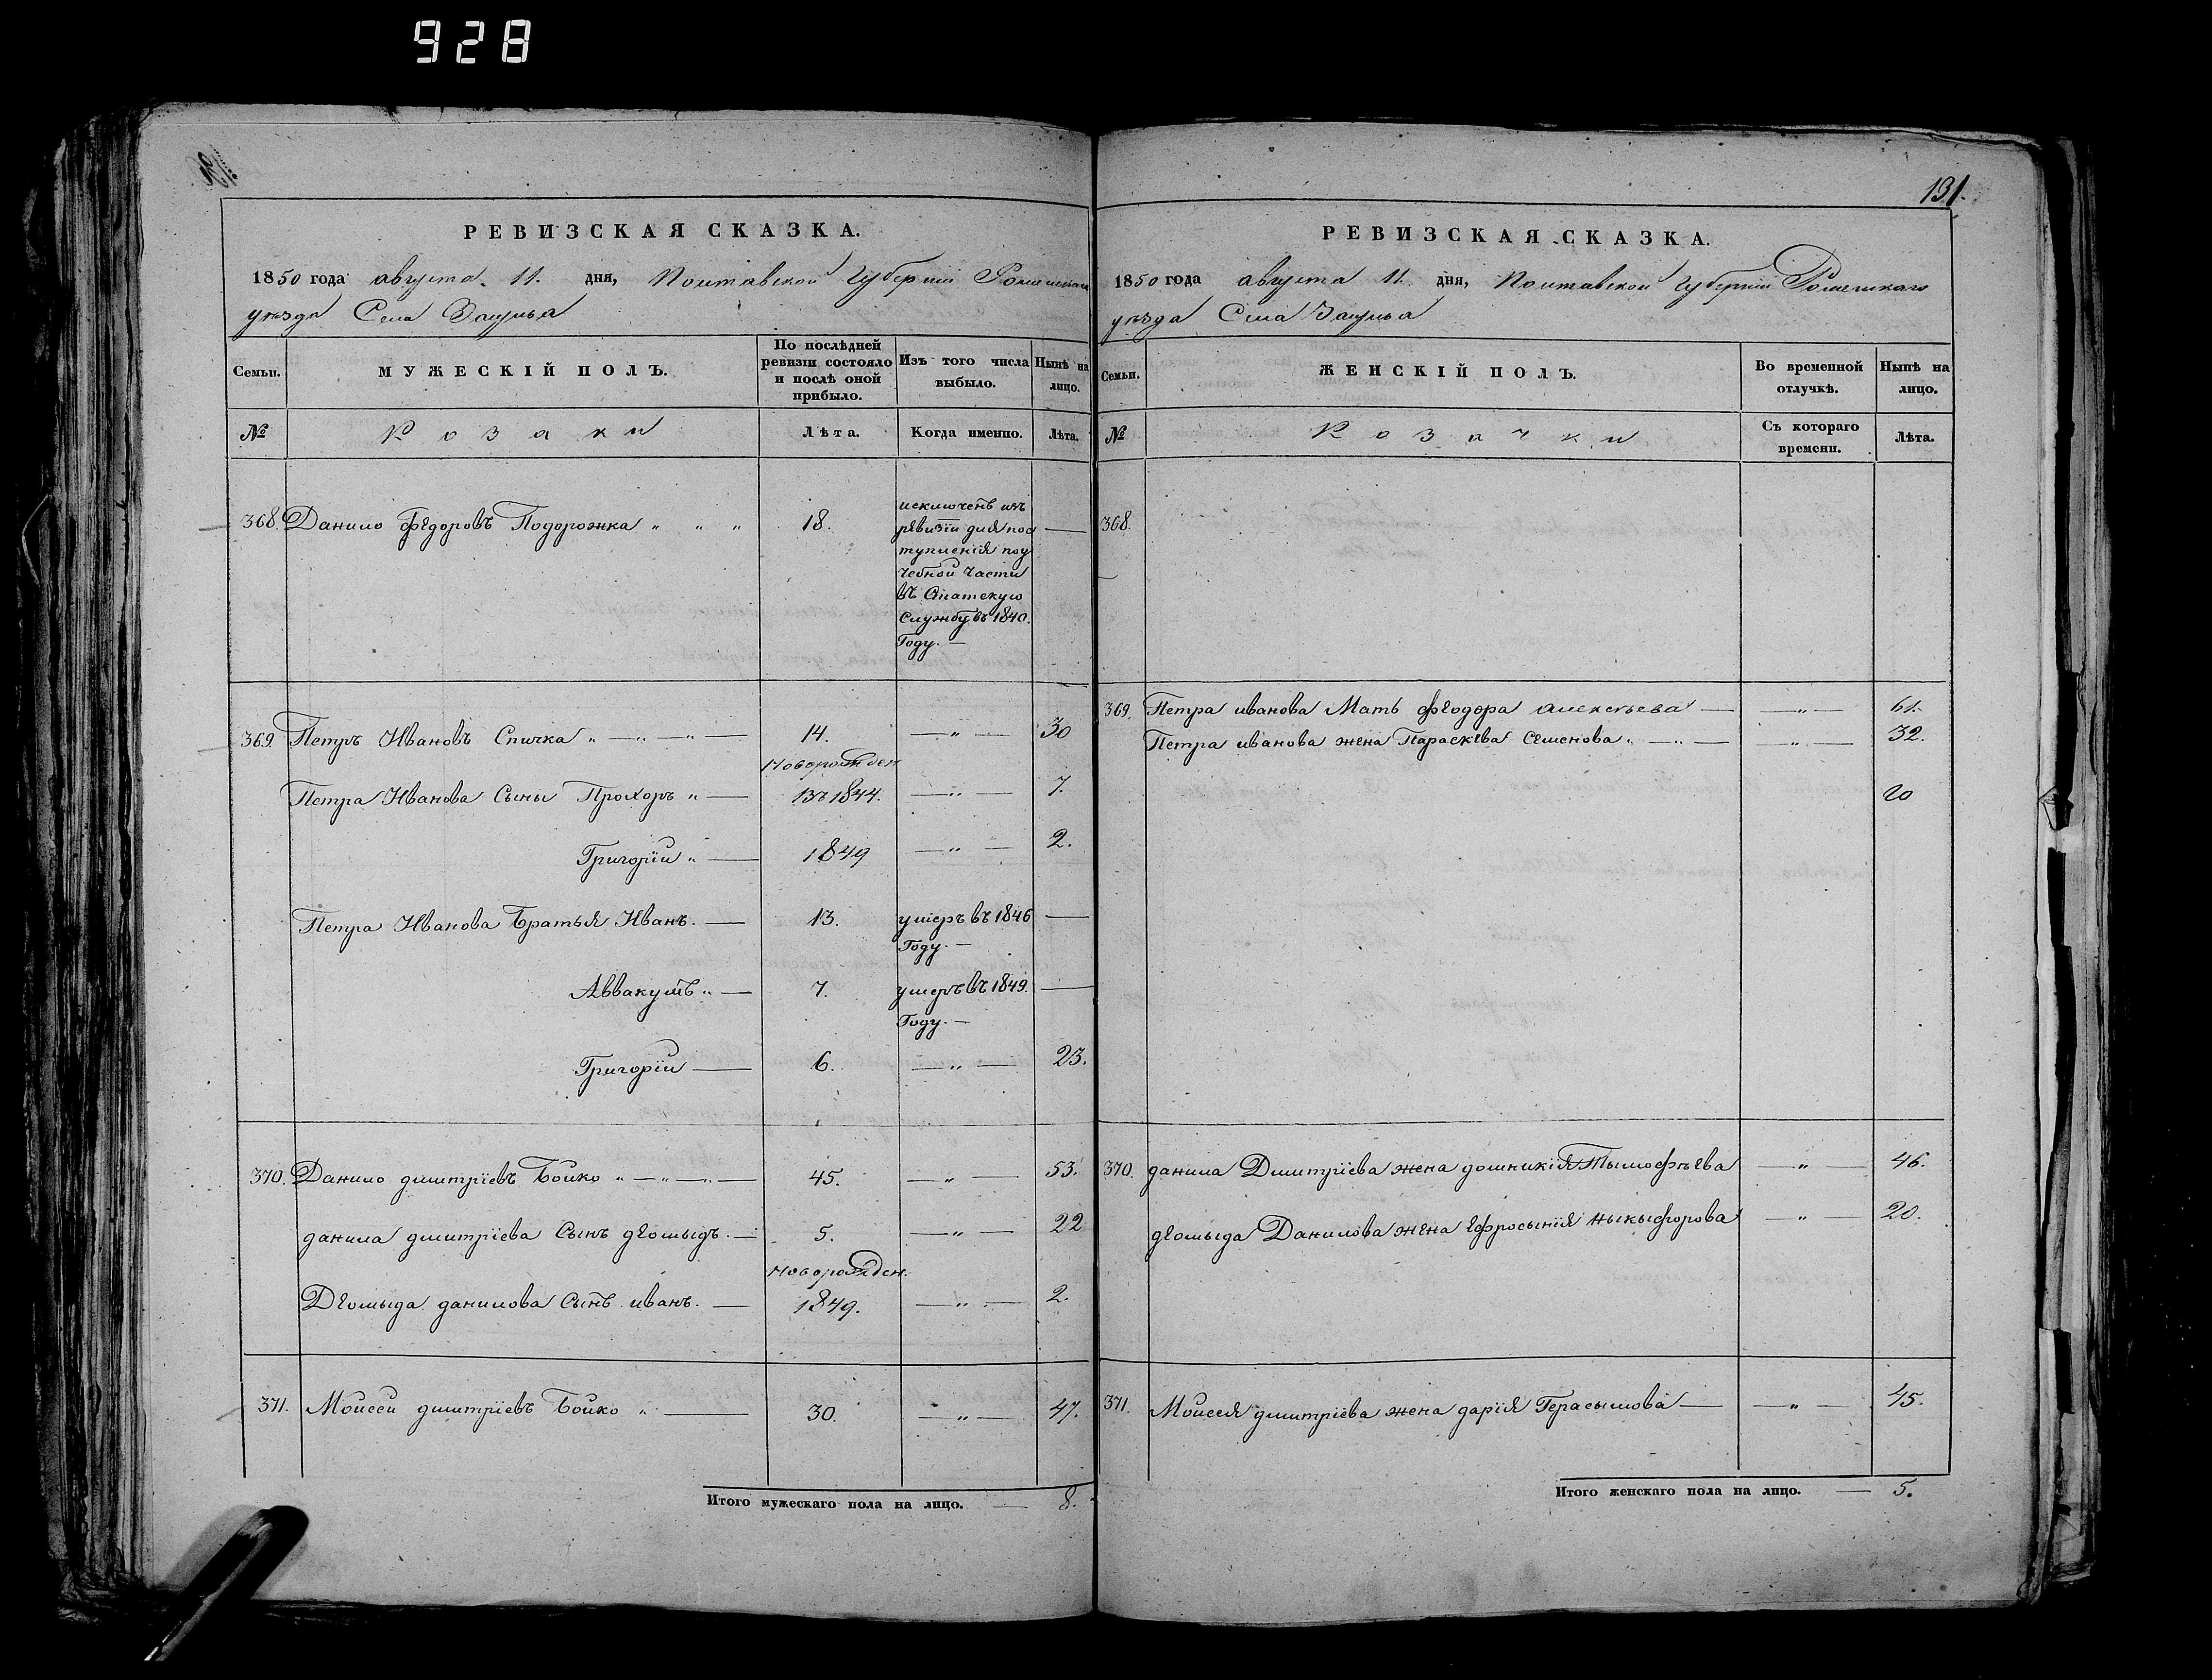 928
131.
РЕВИЗСКАЯ СКАЗКА.
1850 года августа 11. дня, Полтавской Губерніи Роменскаго
уѣзда Села Засулья
Семьи.
МУЖЕСКІЙ ПОЛЪ.
По послѣдней ревизіи состояло и послѣ оной прибыло.
Изъ того числа выбыло.
Нынѣ на лицо.
№
Козаки
Лѣта.
Когда именно.
Лѣта.
368. Данило Федоровъ Подорожка „ „ „ 18.
исключенъ изъ
ревизіи для пос
тупленія по у
чебной части
въ Статскую
Службу въ 1840.
Году. —
369. Петръ Ивановъ Спичка „ — „ — „ — 14. — „ — 30
Новорожден
Петра Иванова Сыны Прохоръ „ — въ 1844. — „ — 7.
Григорій „ — 1849 — „ — 2.
Петра Иванова Братья Иванъ. — 13. умеръ въ 1846 —
Году. —
Аввакумъ „ — 7. умеръ въ 1849. —
Году. —
Григорій — 6. — „ — 23.
370. Данило дмитріевъ Бойко „ — „ — „ — 45. — „ — 53.
данила дмитріева Сынъ деомыдъ. — 5. — „ — 22
Новорожден.
Деомыда данилова Сынъ иванъ. — 1849. — „ — 2.
371. Моисей дмитріевъ Бойко „ — 30. — „ — 47.
Итого мужескаго пола на лицо. — 8.
РЕВИЗСКАЯ СКАЗКА.
1850 года августа 11. дня, Полтавской Губерніи Роменскаго
уѣзда Села Засулья
Семьи.
ЖЕНСКІЙ ПОЛЪ.
Во временной отлучкѣ.
Нынѣ на лицо.
№
Козачки
Съ котораго времени.
Лѣта.
368.
369. Петра иванова Мать феодора алексѣева — — „ — 61.
Петра иванова жена Параскева Семенова „ — „ — — „ — 32.
20
370. данила Дмитріева жена домникія Тымофѣева — „ — 46.
деомыда Данилова жена ефросынія ныкыфорова — „ — 20.
371. Моисея дмитріева жена дарія Герасымова — — „ — 45.
Итого женскаго пола на лицо. — 5.